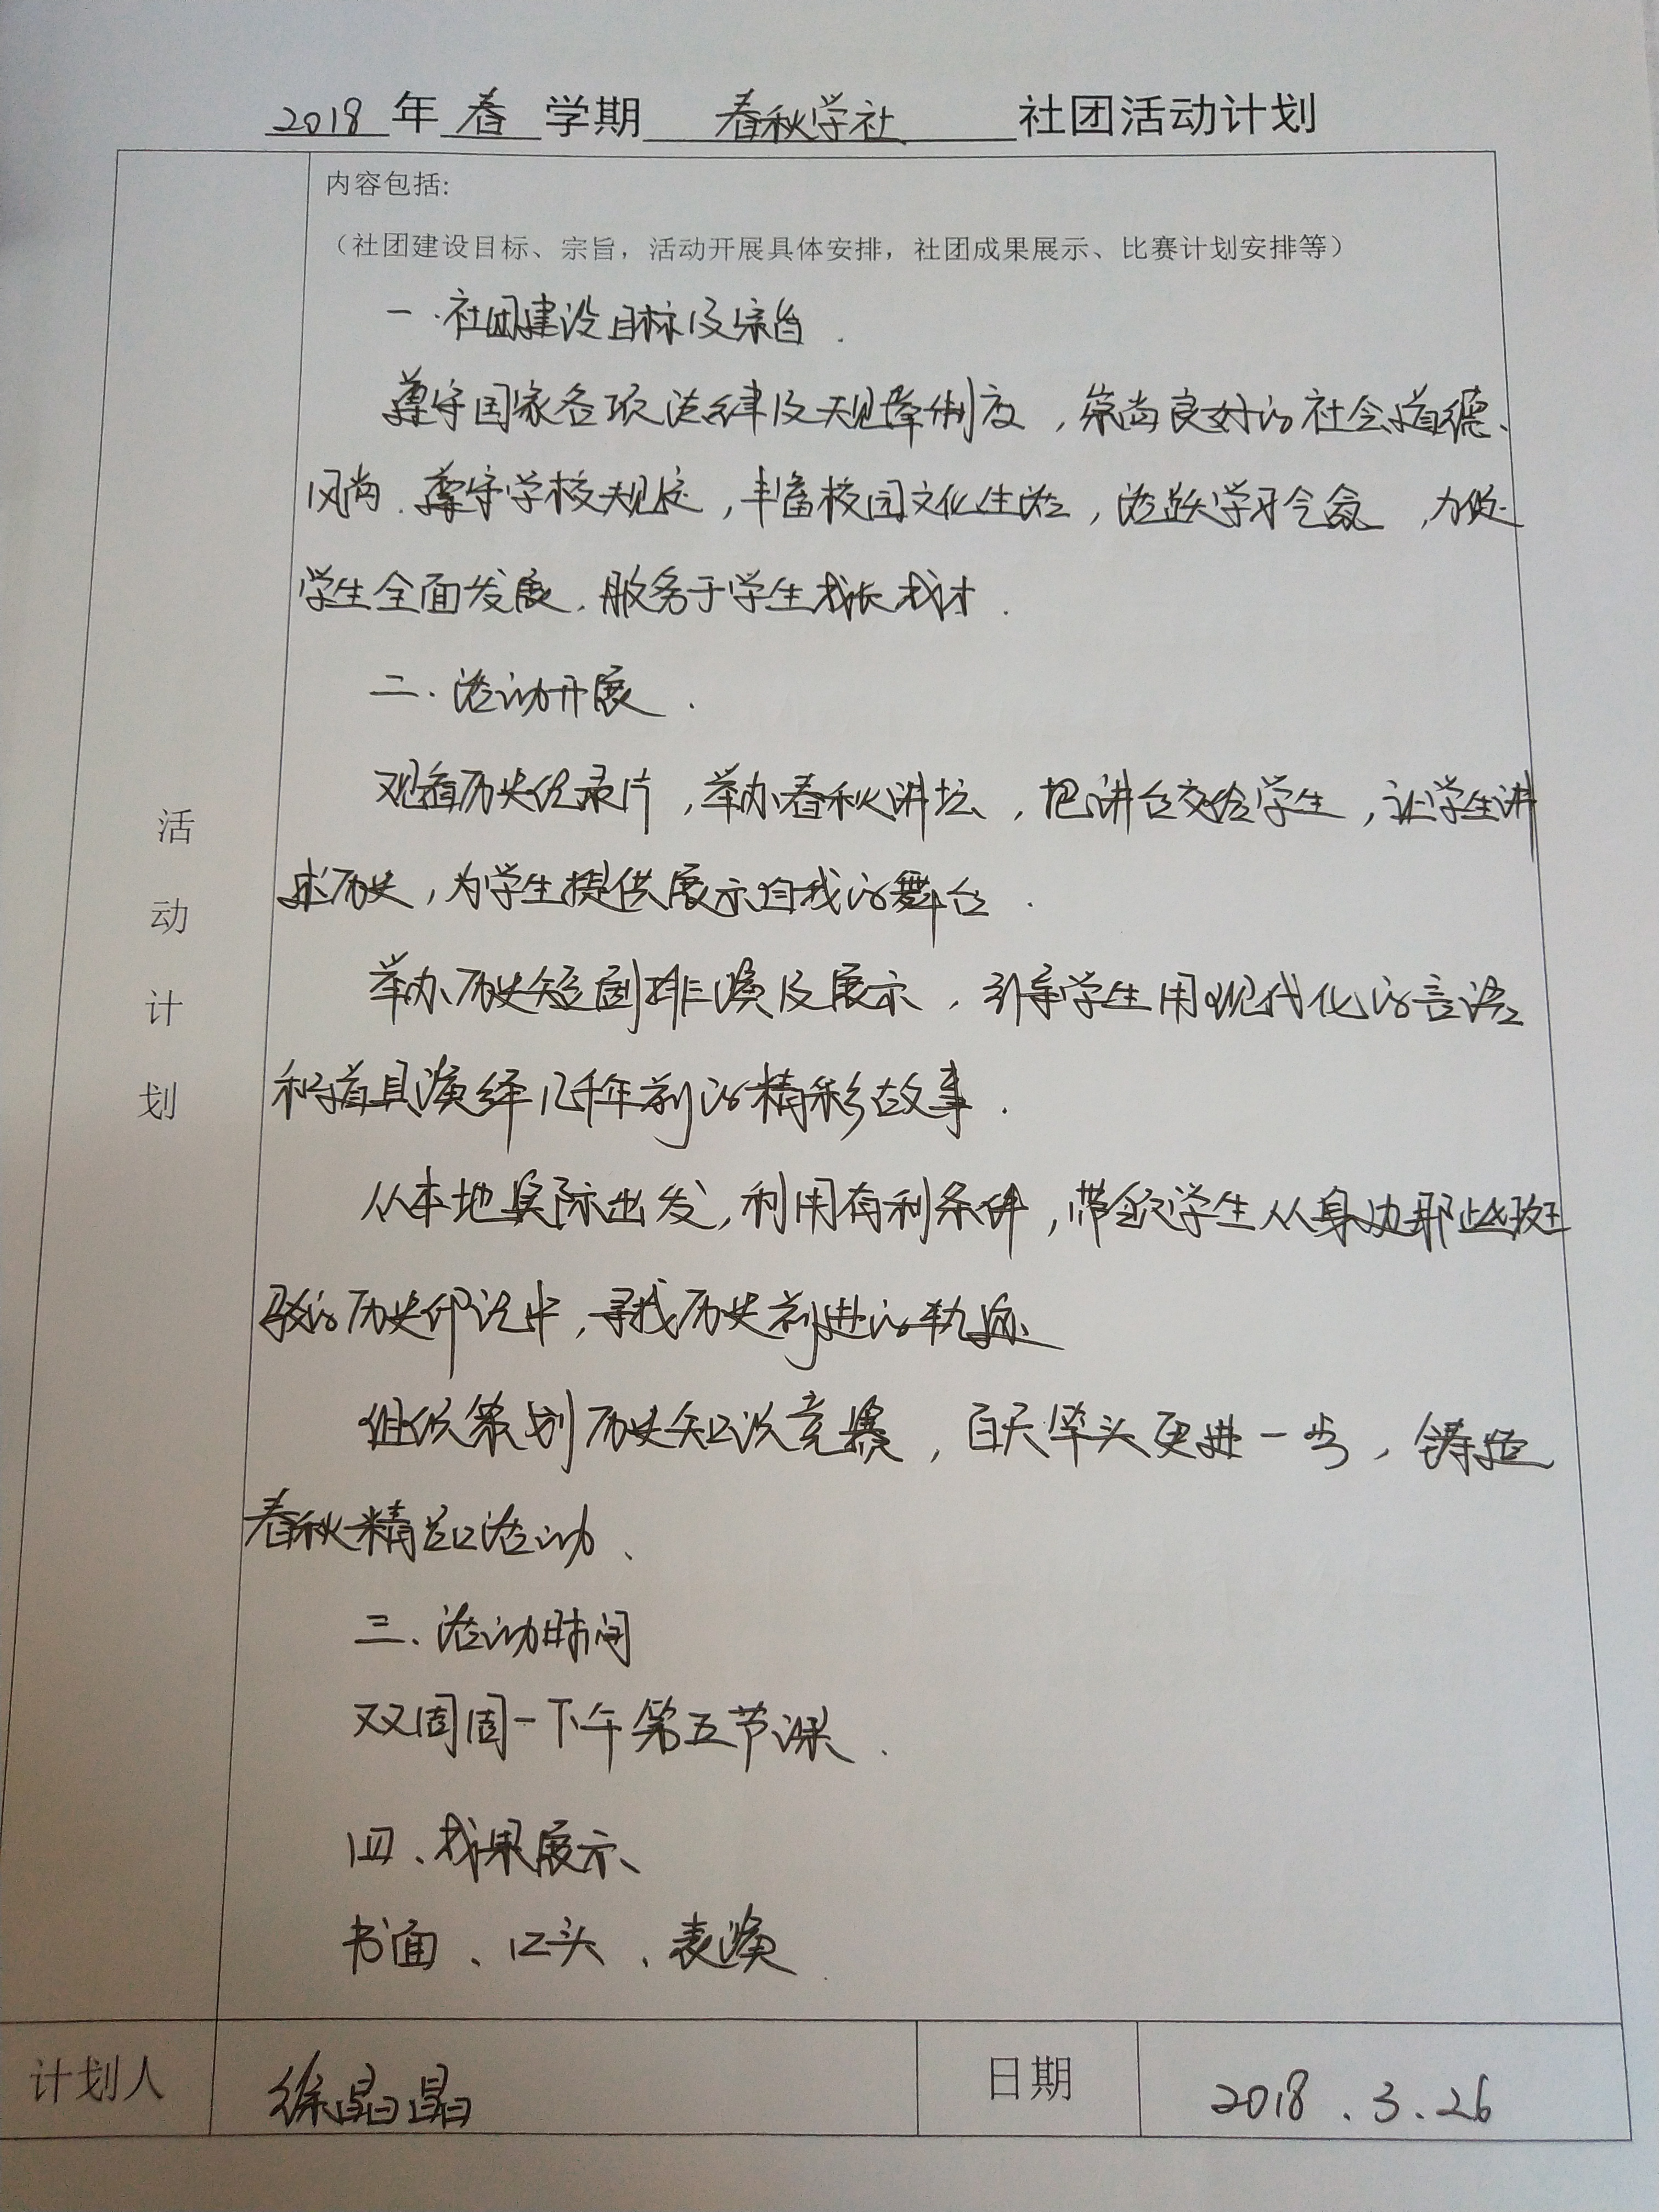 2018 年 春 学期 春秋学社 社团活动计划
内容包括:
（社团建设目标、宗旨，活动开展具体安排，社团成果展示、比赛计划安排等）
一．社团建设目标及宗旨．
遵守国家各项法律及规章制度，崇尚良好的社会道德、
风尚．遵守学校规定，丰富校园文化生活，活跃学习气氛，力促
学生全面发展．服务于学生成长成才．
二．活动开展．
观看历史纪录片，举办春秋讲坛，把讲台交给学生，让学生讲
述历史，为学生提供展示自我的舞台．
举办历史短剧排演及展示，引导学生用现代化的言语
和道具演绎几千年前的精彩故事．
从本地实际出发，利用有利条件，带领学生从身边那些斑
驳的历史印记中，寻找历史前进的轨迹
组织策划历史知识竞赛，百尺竿头更进一步，铸造
春秋精品活动、
三、活动时间
双周周一下午第五节课．
四、成果展示、
书面、口头、表演
活
动
计
划
计划人 徐晶晶 日期 2018．3．26